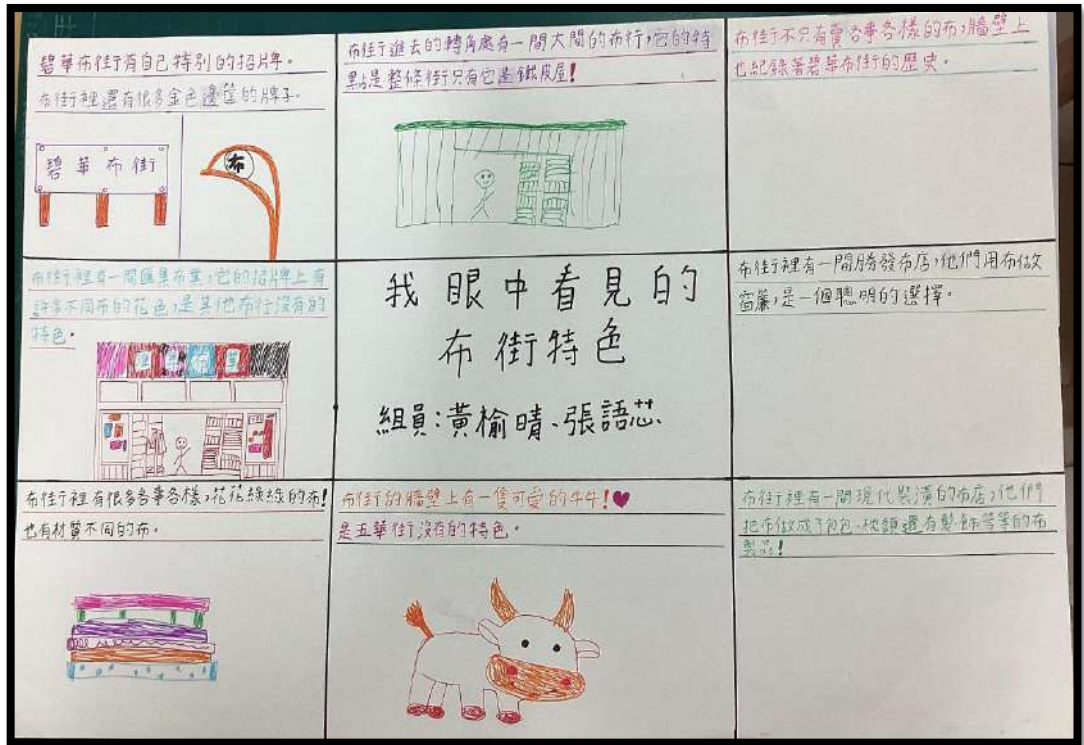 碧華布街有自己特別的招牌。
布街裡還有很多金色邊筐的牌子。
碧華布街
布
布街進去的轉角處有一間大間的布行,它的特
點是整條街只有它是鐵皮屋!
布街不只有賣各事各樣的布,牆壁上
也紀錄著碧華布街的歷史。
布街裡有一間匯集布業,它的招牌上有
許多不同布的花色,是其他布行沒有的
特色。
布業
我眼中看見的
布街特色
組員:黃榆晴、張語芯
布街裡有一間勝發布店,他們用布做
窗簾,是一個聰明的選擇。
布街裡有很多各事各樣,花花綠綠的布!
也有材質不同的布。
布街的牆壁上有一隻可愛的牛牛!♥
是五華街沒有的特色。
布街裡有一間現代裝潢的布店,他們
把布做成了包包、枕頭還有髮飾等等的布
製品!